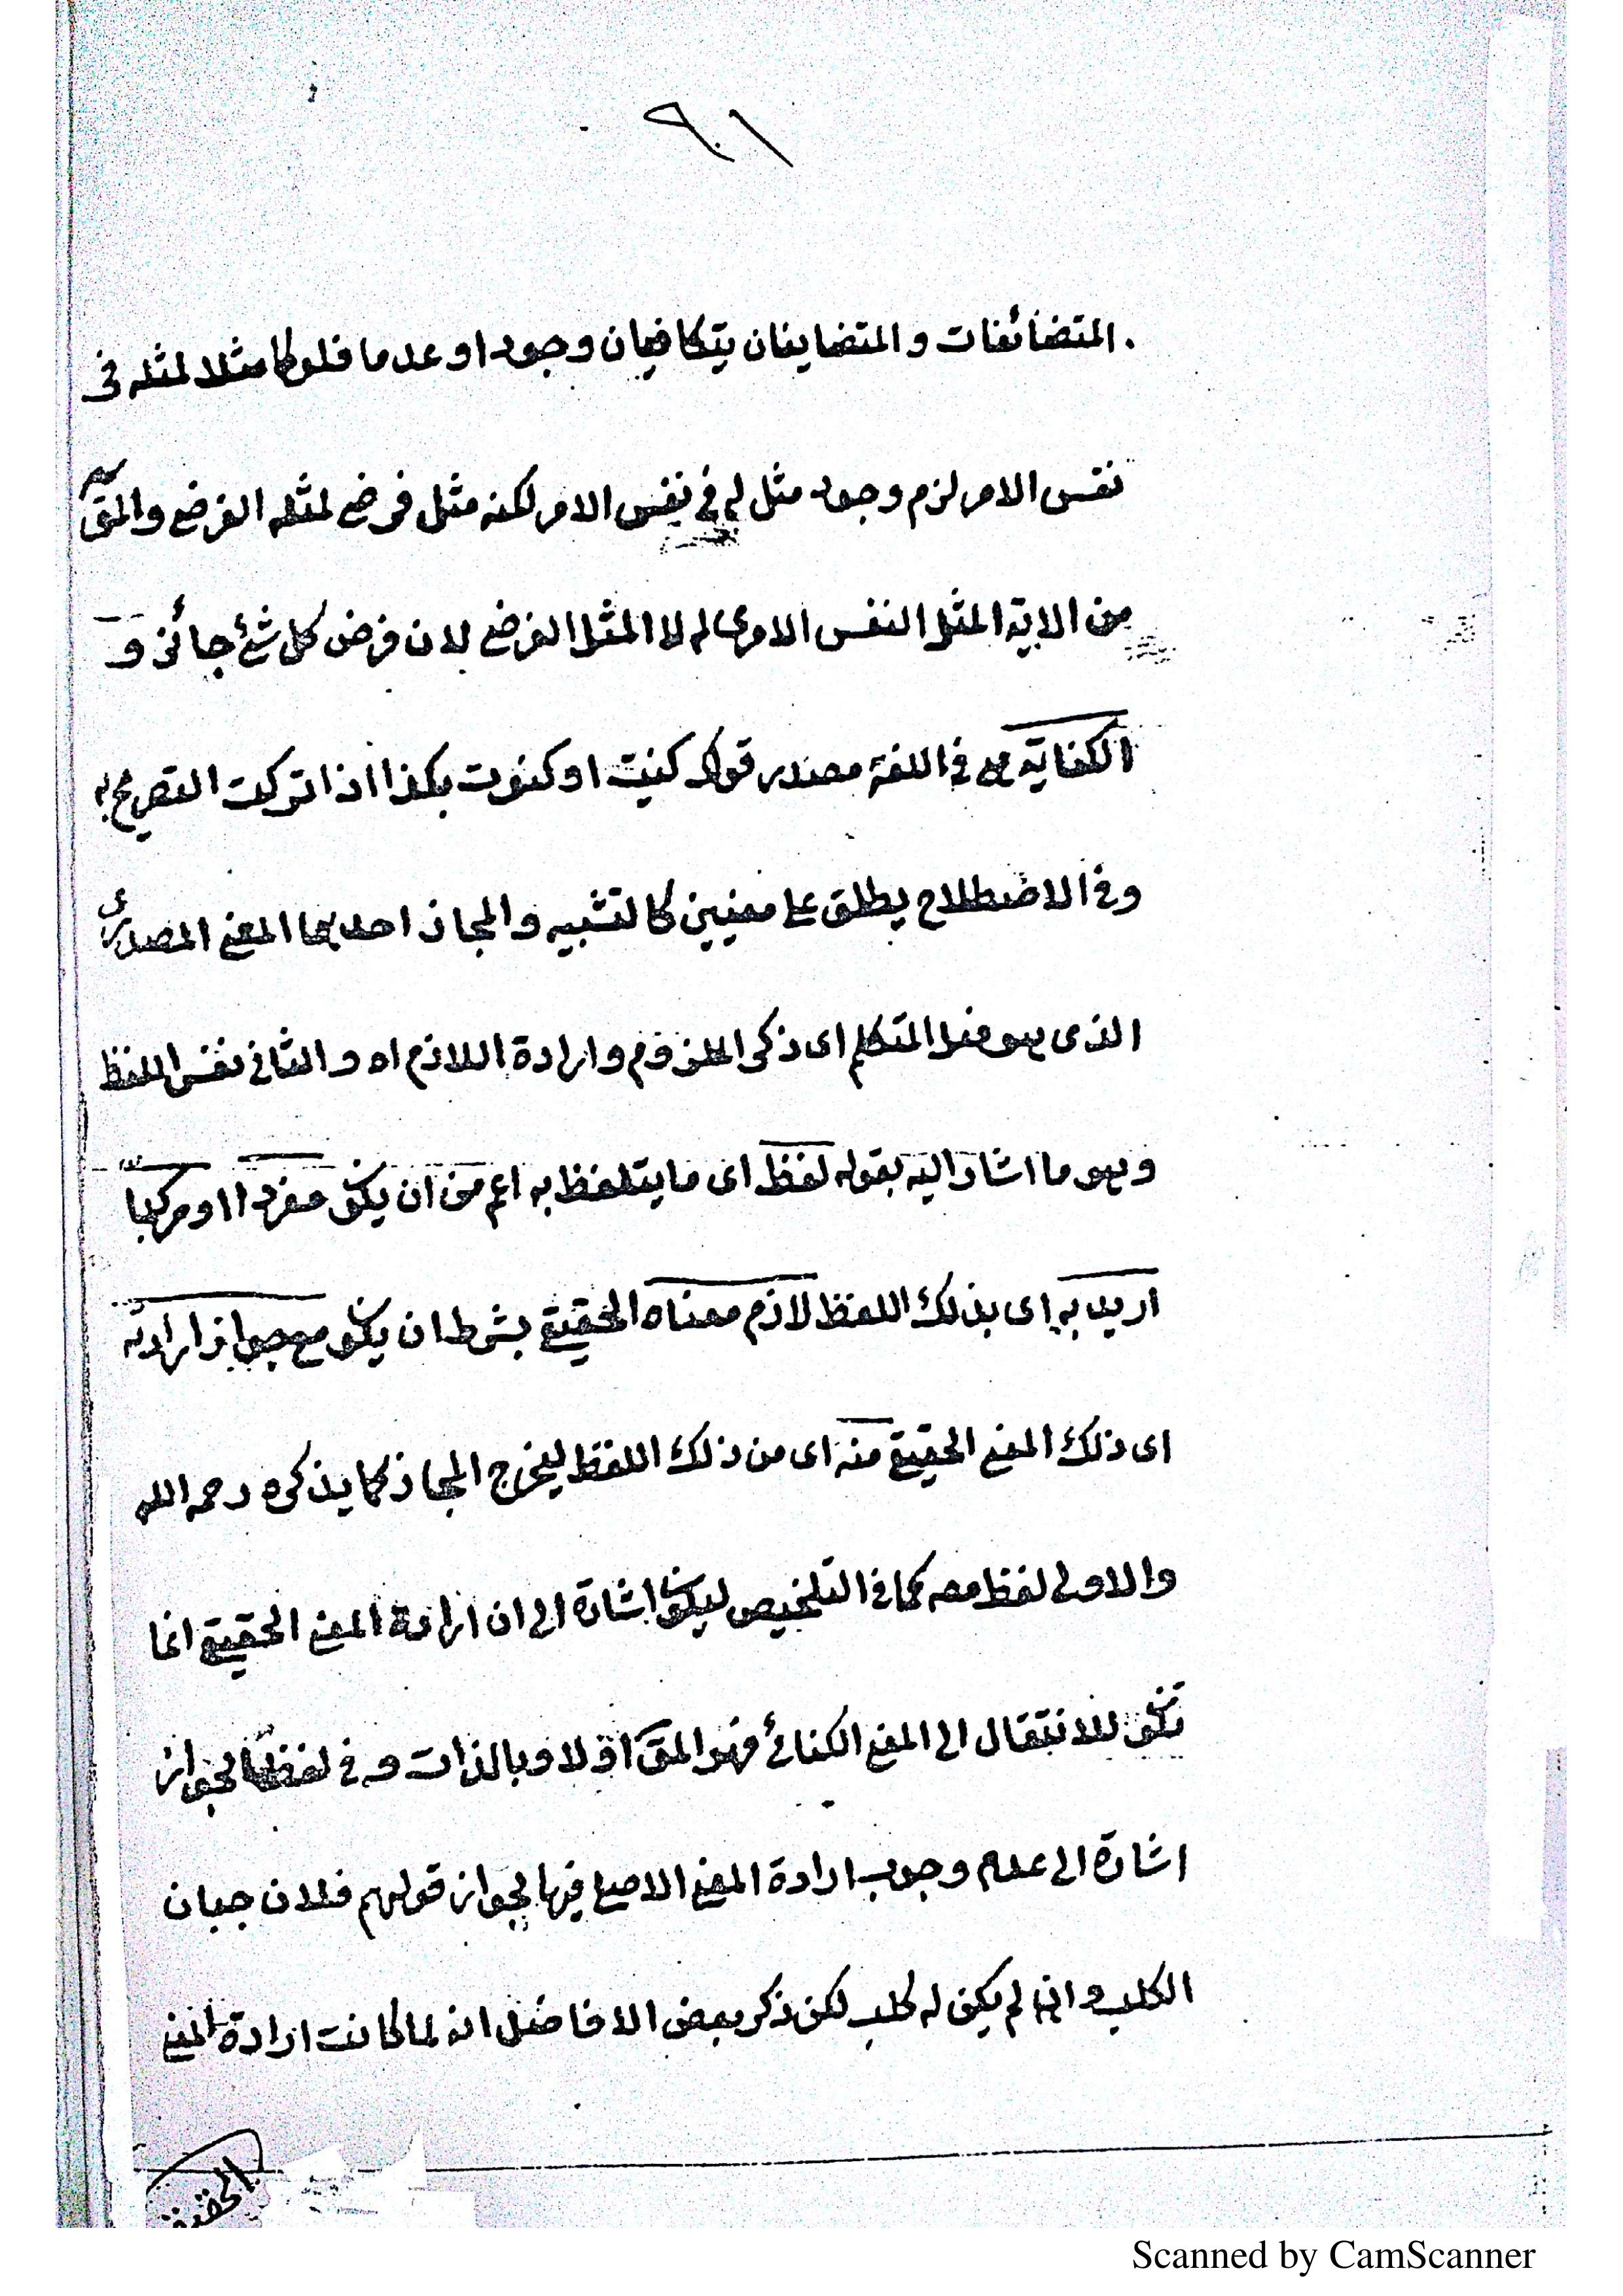 ٩٠١
المتضائفات والمتضايفان يتكافيان وجودا او عدما فلو كا مثلا لمثله فى
نفس الامر لزم وجود مثل له فى نفس الامر لكنه مثل فرضى لمثله الفرضى والمق
من الاية المثل النفس الامرى له لا المثل الفرضى لان فرض كل شئ جائز و
الكناية هى فى اللغة مصدر قولك كنيت او كنوت بكذا اذا تركت التصريح به
وفى الاصطلاح يطلق على معنيين كالتشبيه والمجاز احدهما المعنى المصدرى
الذى هو فعل المتكلم اى ذكر الملزوم وارادة اللازم اه والثانى نفس اللفظ
وهو ما اشار اليه بقوله لفظ اى ما يتلفظ به اعم من ان يكون مفردا او مركبا
اريد به اى بذلك اللفظ لازم معناه الحقيقى بشرط ان يكون مع جواز ارادته
اى ذلك المعنى الحقيقى منه اى من ذلك اللفظ ليخرج المجاز كما يذكره رحمه الله
والاولى لفظ معه كما فى التلخيص ليكون اشارة الى ان ارادة المعنى الحقيقى انما
تكون للانتقال الى المعنى الكنائى فهو المق اولا وبالذات و فى لفظ الجواز
اشارة الى عدم وجوب ارادة المعنى الاصلى فيها لجواز قولهم فلان جبان
الكلب وان لم يكن له كلب لكن ذكر بعض الافاضل انه لما كانت ارادة المعنى
الحقيقى
Scanned by CamScanner